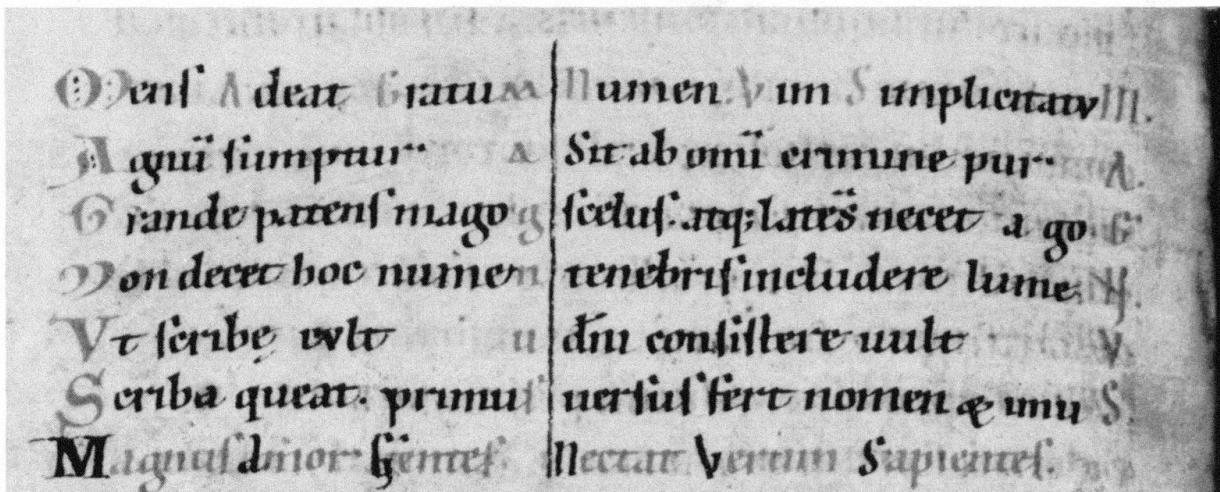 Mens Adeat GratuM Numen. Vim SimplicitatuM.
Agnū sumptur·· A Sit ab om̄i crimine pur·· A.
Grande patens mago g scelus. atq; latēs necet a go G
Non decet hoc numen n tenebris includere lume N.
Vt scribę vult u dm̄ consistere uult V.
Scriba queat. primus uersus fert nomen & unu S.
Magnus Nectar Verum Sapientes.